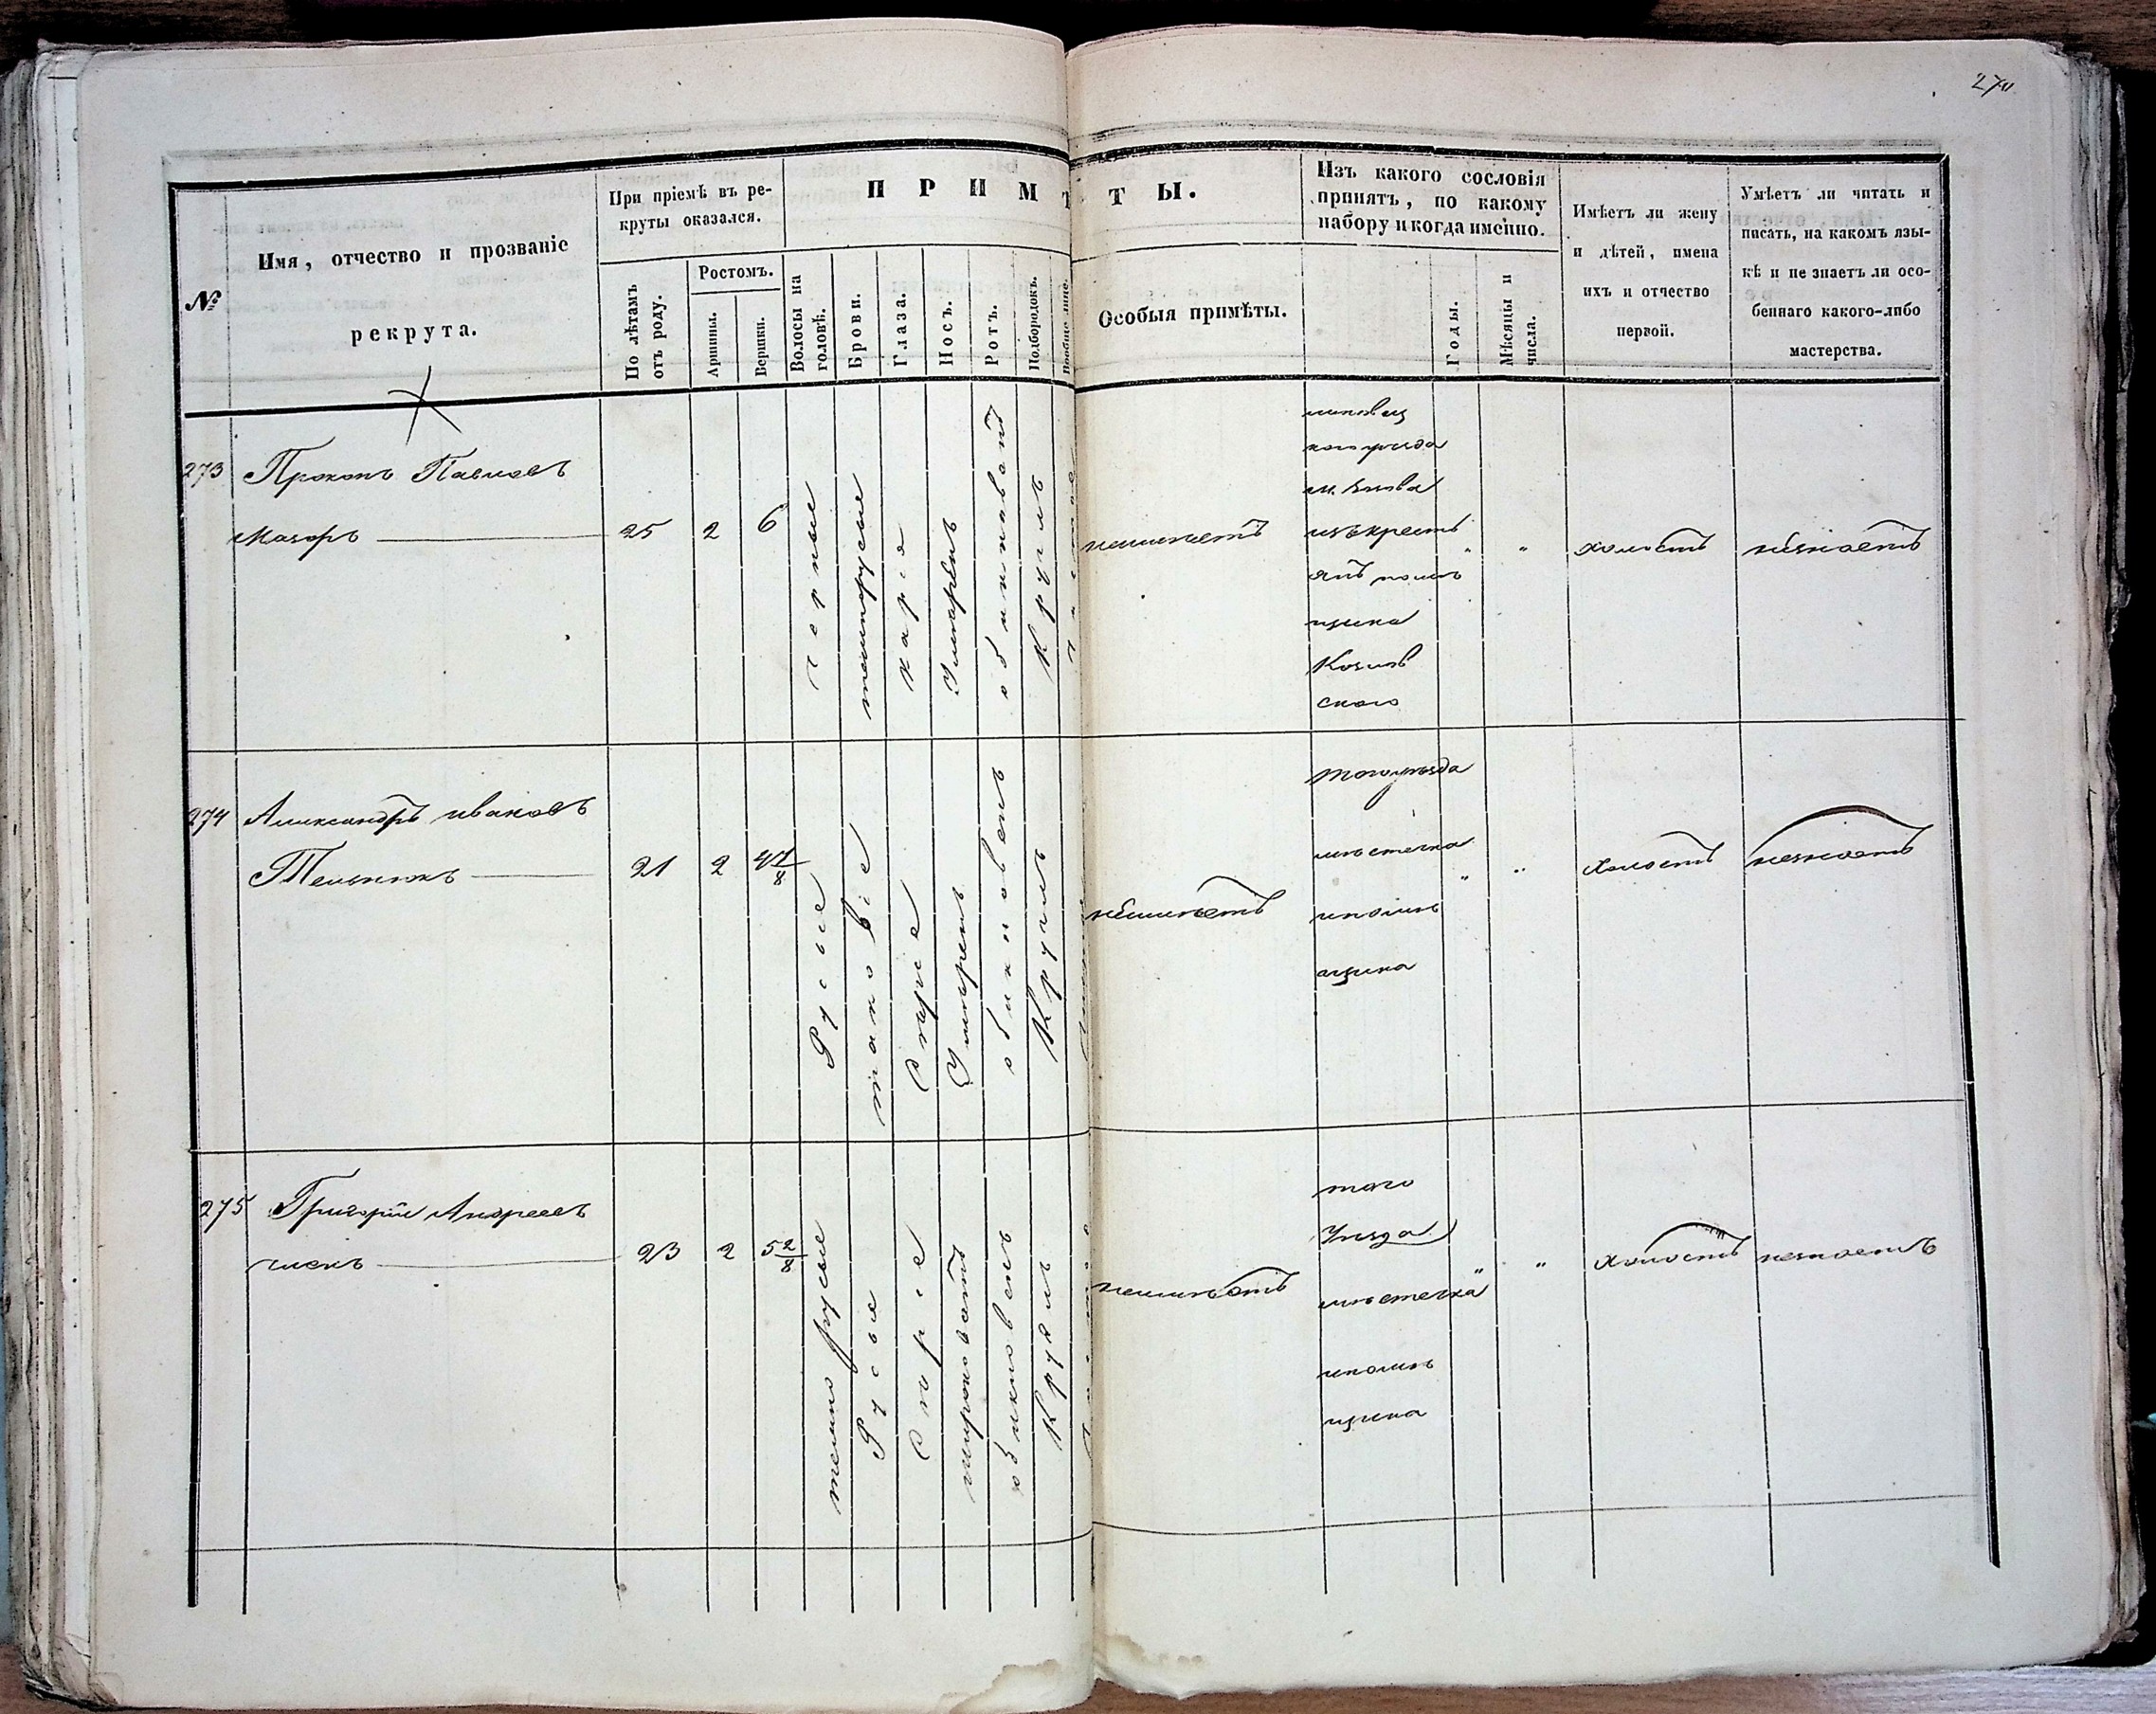 270
№
Имя, отчество и прозваніе
рекрута.
При пріемѣ въ ре-
круты оказался.
По лѣтамъ
отъ роду.
Ростомъ.
Аршины.
Вершки.
ПРИМѢТЫ.
Волосы на
головѣ.
Брови.
Глаза.
Носъ.
Ротъ.
Подбородокъ.
Вообще лице.
Особыя примѣты.
Изъ какого сословія
принятъ, по какому
набору и когда именно.
Годы.
Мѣсяцы и
числа.
Имѣетъ ли жену
и дѣтей, имена
ихъ и отчество
первой.
Умѣетъ ли читать и
писать, на какомъ язы-
кѣ и не знаетъ ли осо-
беннаго какого-либо
мастерства.
273
Прокопъ Павловъ
Мазоръ
25
2
6
черные
темнорусые
каріе
Умѣренъ
Круглъ
неимѣетъ
изъ крест
янъ помѣ
щика
Козлов
скаго
"
"
холостъ
незнаетъ
274
Александръ ивановъ
Тельнюкъ
21
2
4 1/8
Русые
таковіе
Сѣрые
Умѣренъ
обикновенъ
Круглъ
неимѣетъ
тогоуѣзда
мѣстечка
ипомѣ
щика
"
"
Холостъ
незнаетъ
275
Григорій Андреевъ
23
2
5 2/8
темно русые
Русые
Сѣріе
широковатъ
обикновенъ
Круглъ
неимѣетъ
того
Уѣзда
мѣстечка
ипомѣ
щика
"
"
Холостъ
незнаетъ